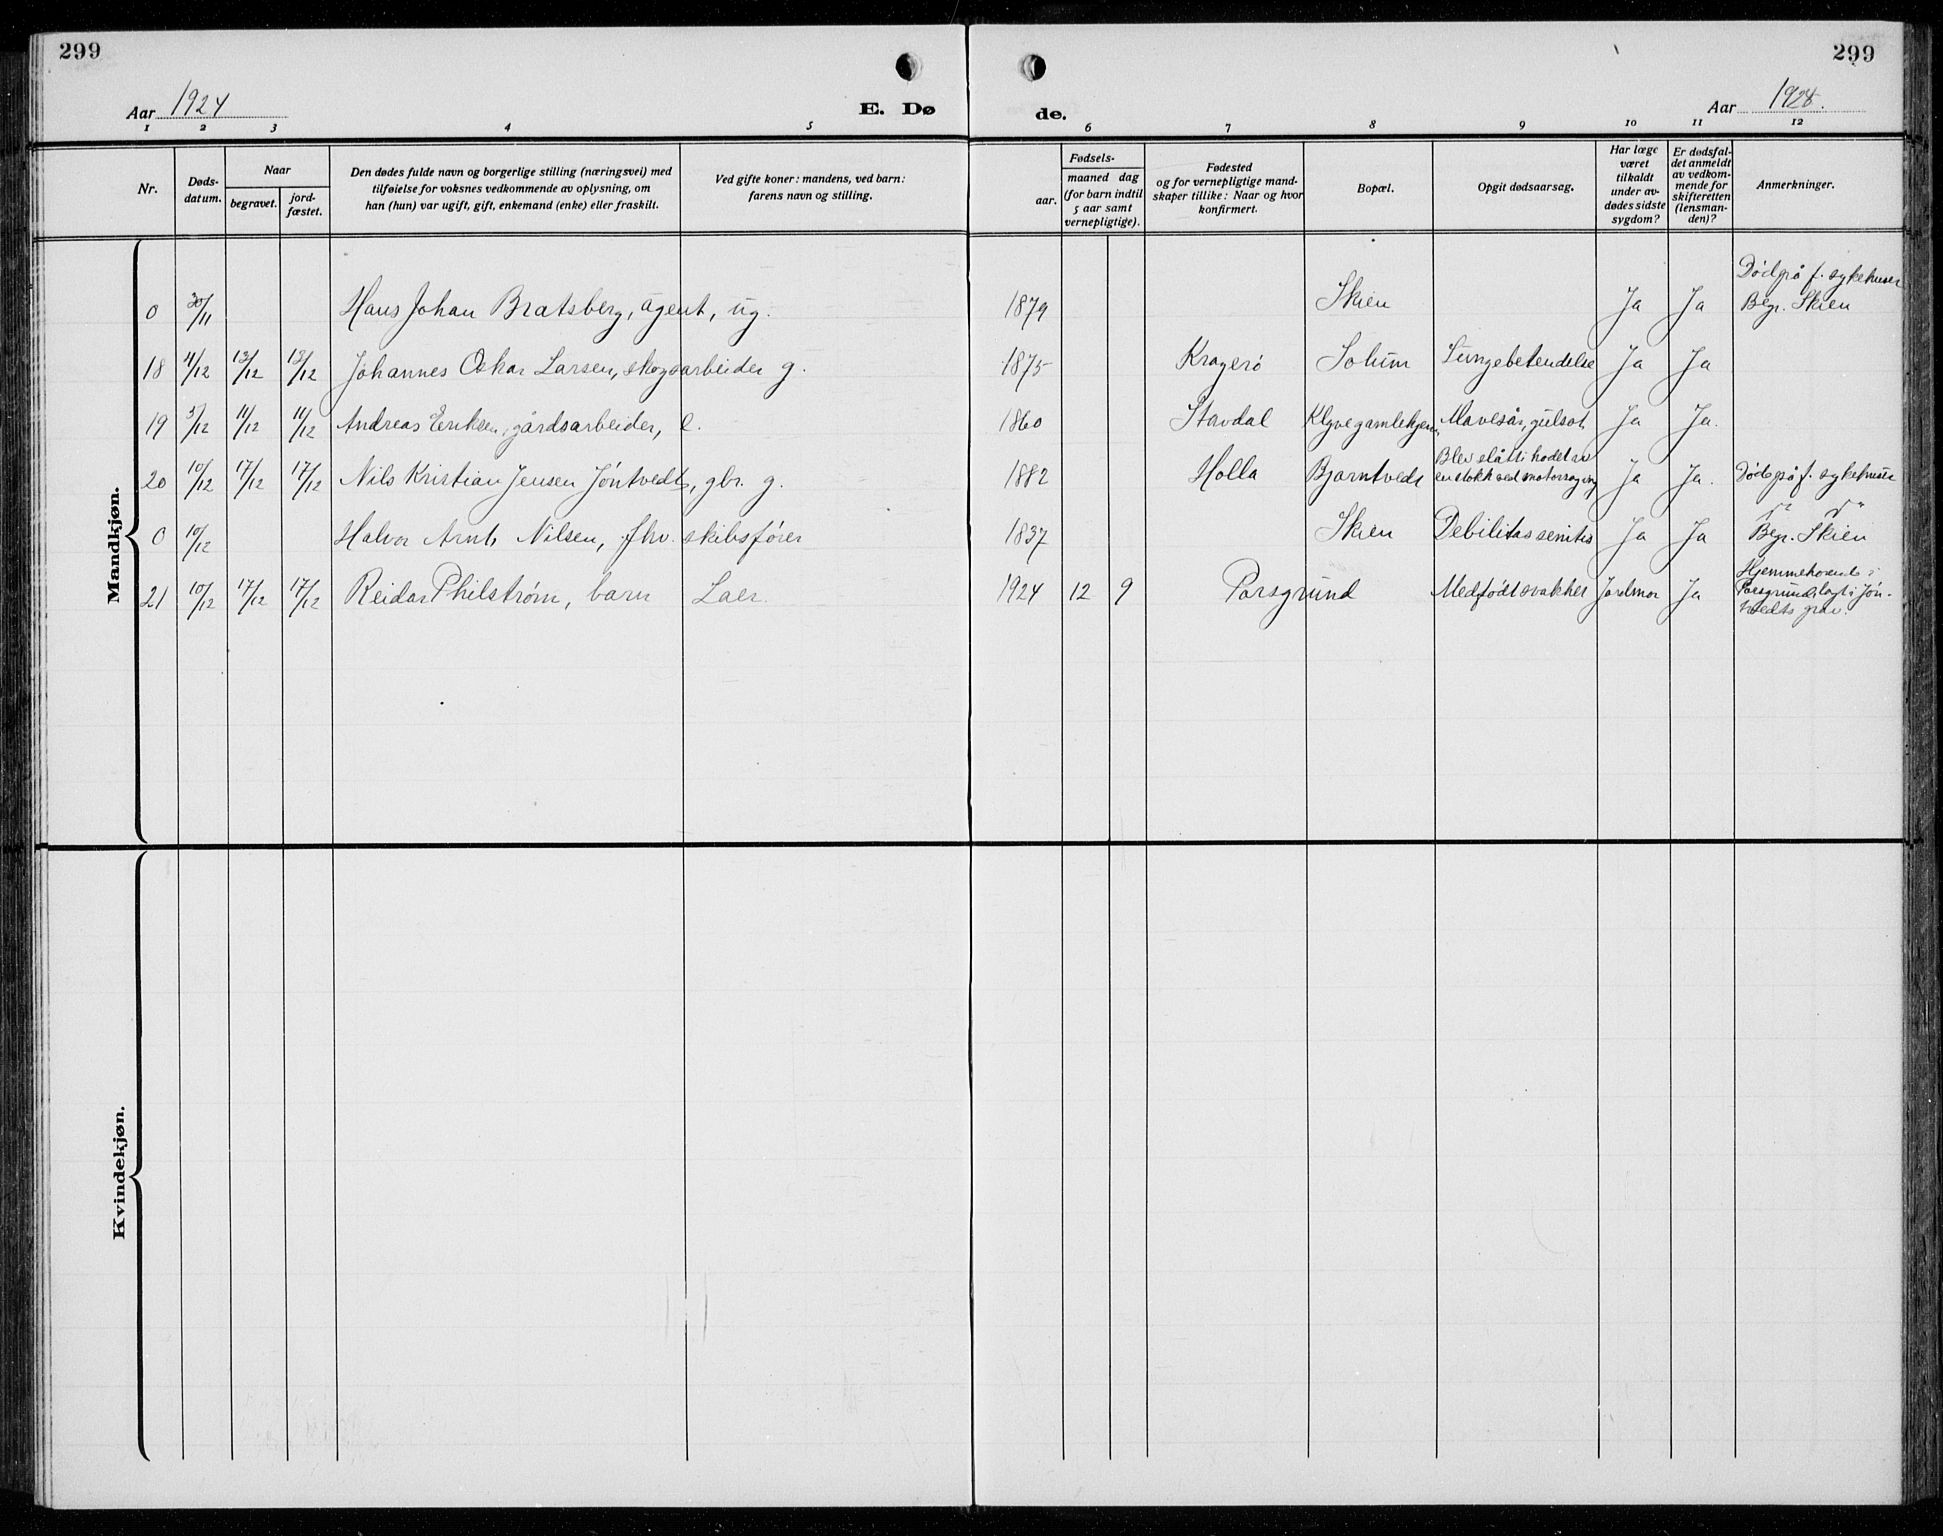 299
299
Aar 1924
E. Dø
de.
Aar 1924.
1 2 3 4 5 6 7 8 9 10 11 12
Nr.
Døds-
datum.
Naar
begravet.
jord-
fæstet.
Den dødes fulde navn og borgerlige stilling (næringsvei) med
tilføielse for voksnes vedkommende av oplysning, om
han (hun) var ugift, gift, enkemand (enke) eller fraskilt.
Ved gifte koner: mandens, ved barn:
farens navn og stilling.
Fødsels-
aar.
maaned dag
(for barn indtil
5 aar samt
vernepligtige).
Fødested
og for vernepligtige mand-
skaper tillike: Naar og hvor
konfirmert.
Bopæl.
Opgit dødsaarsag.
Har læge
været
tilkaldt
under av-
dødes sidste
sygdom?
Er dødsfal-
det anmeldt
av vedkom-
mende for
skifteretten
(lensman-
den)?
Anmerkninger.
Mandkjøn.
Død på f. sykehuset
0 30/11 Hans Johan Bratsberg, agent, ug. 1879 Skien Ja Ja Begr. Skien
18 4/12 13/12 13/12 Johannes Oskar Larsen, skogsarbeider g. 1875 Kragerø Solum Lungebetendelse Ja Ja
19 5/12 11/12 11/12 Andreas Eriksen, gårdsarbeider, e. 1860 Mavesår, gulsot Ja Ja.
Blev slått i hodet av
20 10/12 17/12 17/12 Nils Kristian Jensen Jøntvedt, gbr. g. 1882 Holla Bjørntvedt en stokk ved motorsaging Ja Ja. Død på f. sykehuset
0 10/12 Halvor Arnt Nilsen, fhv. skibsfører 1837 Skien Debilitas senilis Ja Ja Begr. Skien
Hjemmehørende i
21 10/12 17/12 17/12 Reidar Philstrøm, barn 1924 12 9 Porsgrund Medfødt svakhet Jordmor Ja Porsgrund, lagt i Jøn-
tvedts grav.
Kvindekjøn.